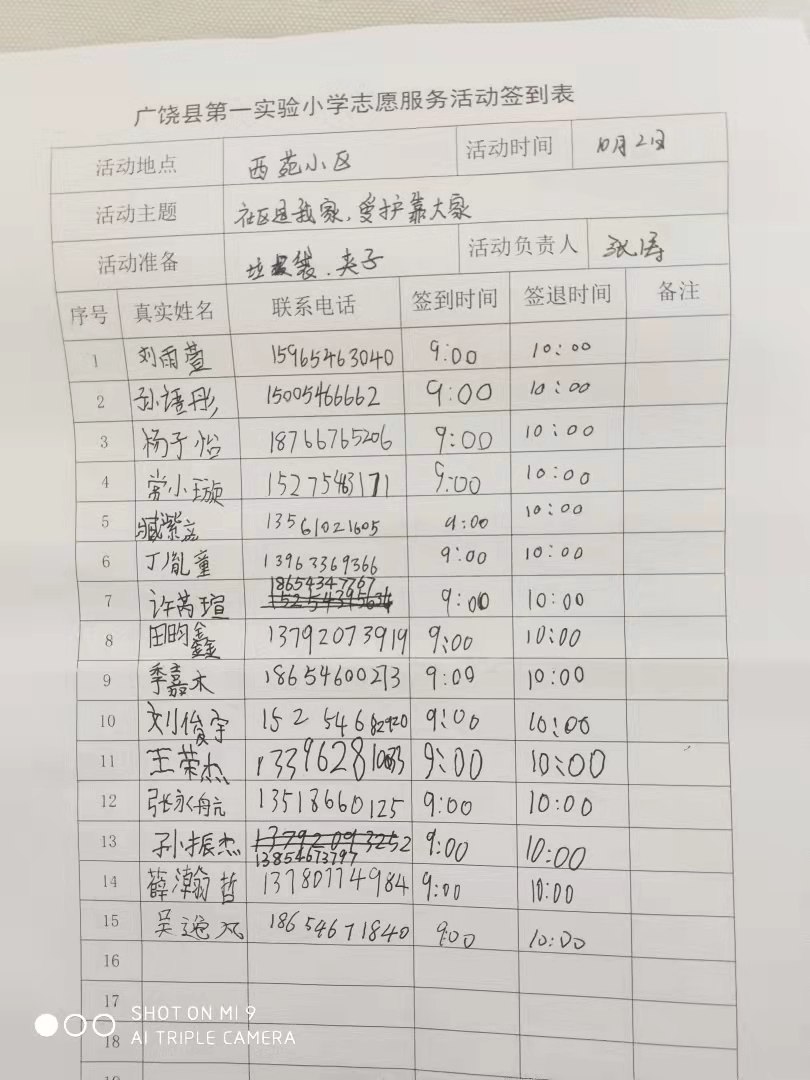 广饶县第一实验小学志愿服务活动签到表
活动地点 西苑小区 活动时间 10月2日
活动主题 社区是我家,爱护靠大家
活动准备 垃圾袋、夹子 活动负责人 张涛
序号 真实姓名 联系电话 签到时间 签退时间 备注
1 刘雨萱 15965463040 9:00 10:00
2 孙语彤 15005466662 9:00 10:00
3 杨子怡 18766765206 9:00 10:00
4 常小璇 15275463171 9:00 10:00
5 臧紫 13561021605 9:00 10:00
6 丁胤童 13963369366 9:00 10:00
7 许芮瑄 18654347767 9:00 10:00
8 田昀鑫 13792073919 9:00 10:00
9 季嘉木 18654600273 9:00 10:00
10 刘俊宇 15254682920 9:00 10:00
11 王荣杰 9:00 10:00
12 张永航 13518660125 9:00 10:00
13 孙振杰 13792093252 9:00 10:00
13854673797
14 薛瀚哲 13780774984 9:00 10:00
15 吴逸凡 18654671840 9:00 10:00
16
17
18
SHOT ON MI 9
AI TRIPLE CAMERA